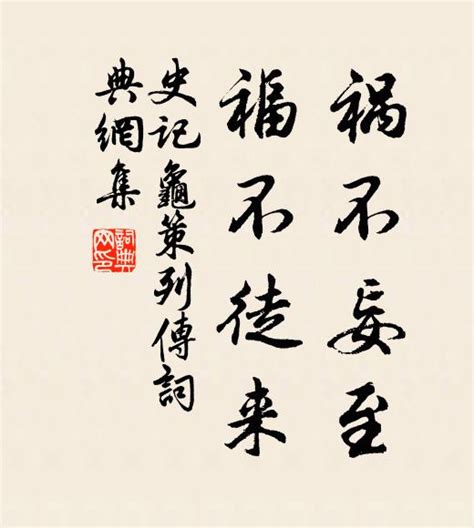 祸不妄至
福不徒来
史记龜策列傳詞
典網集
詞典网印